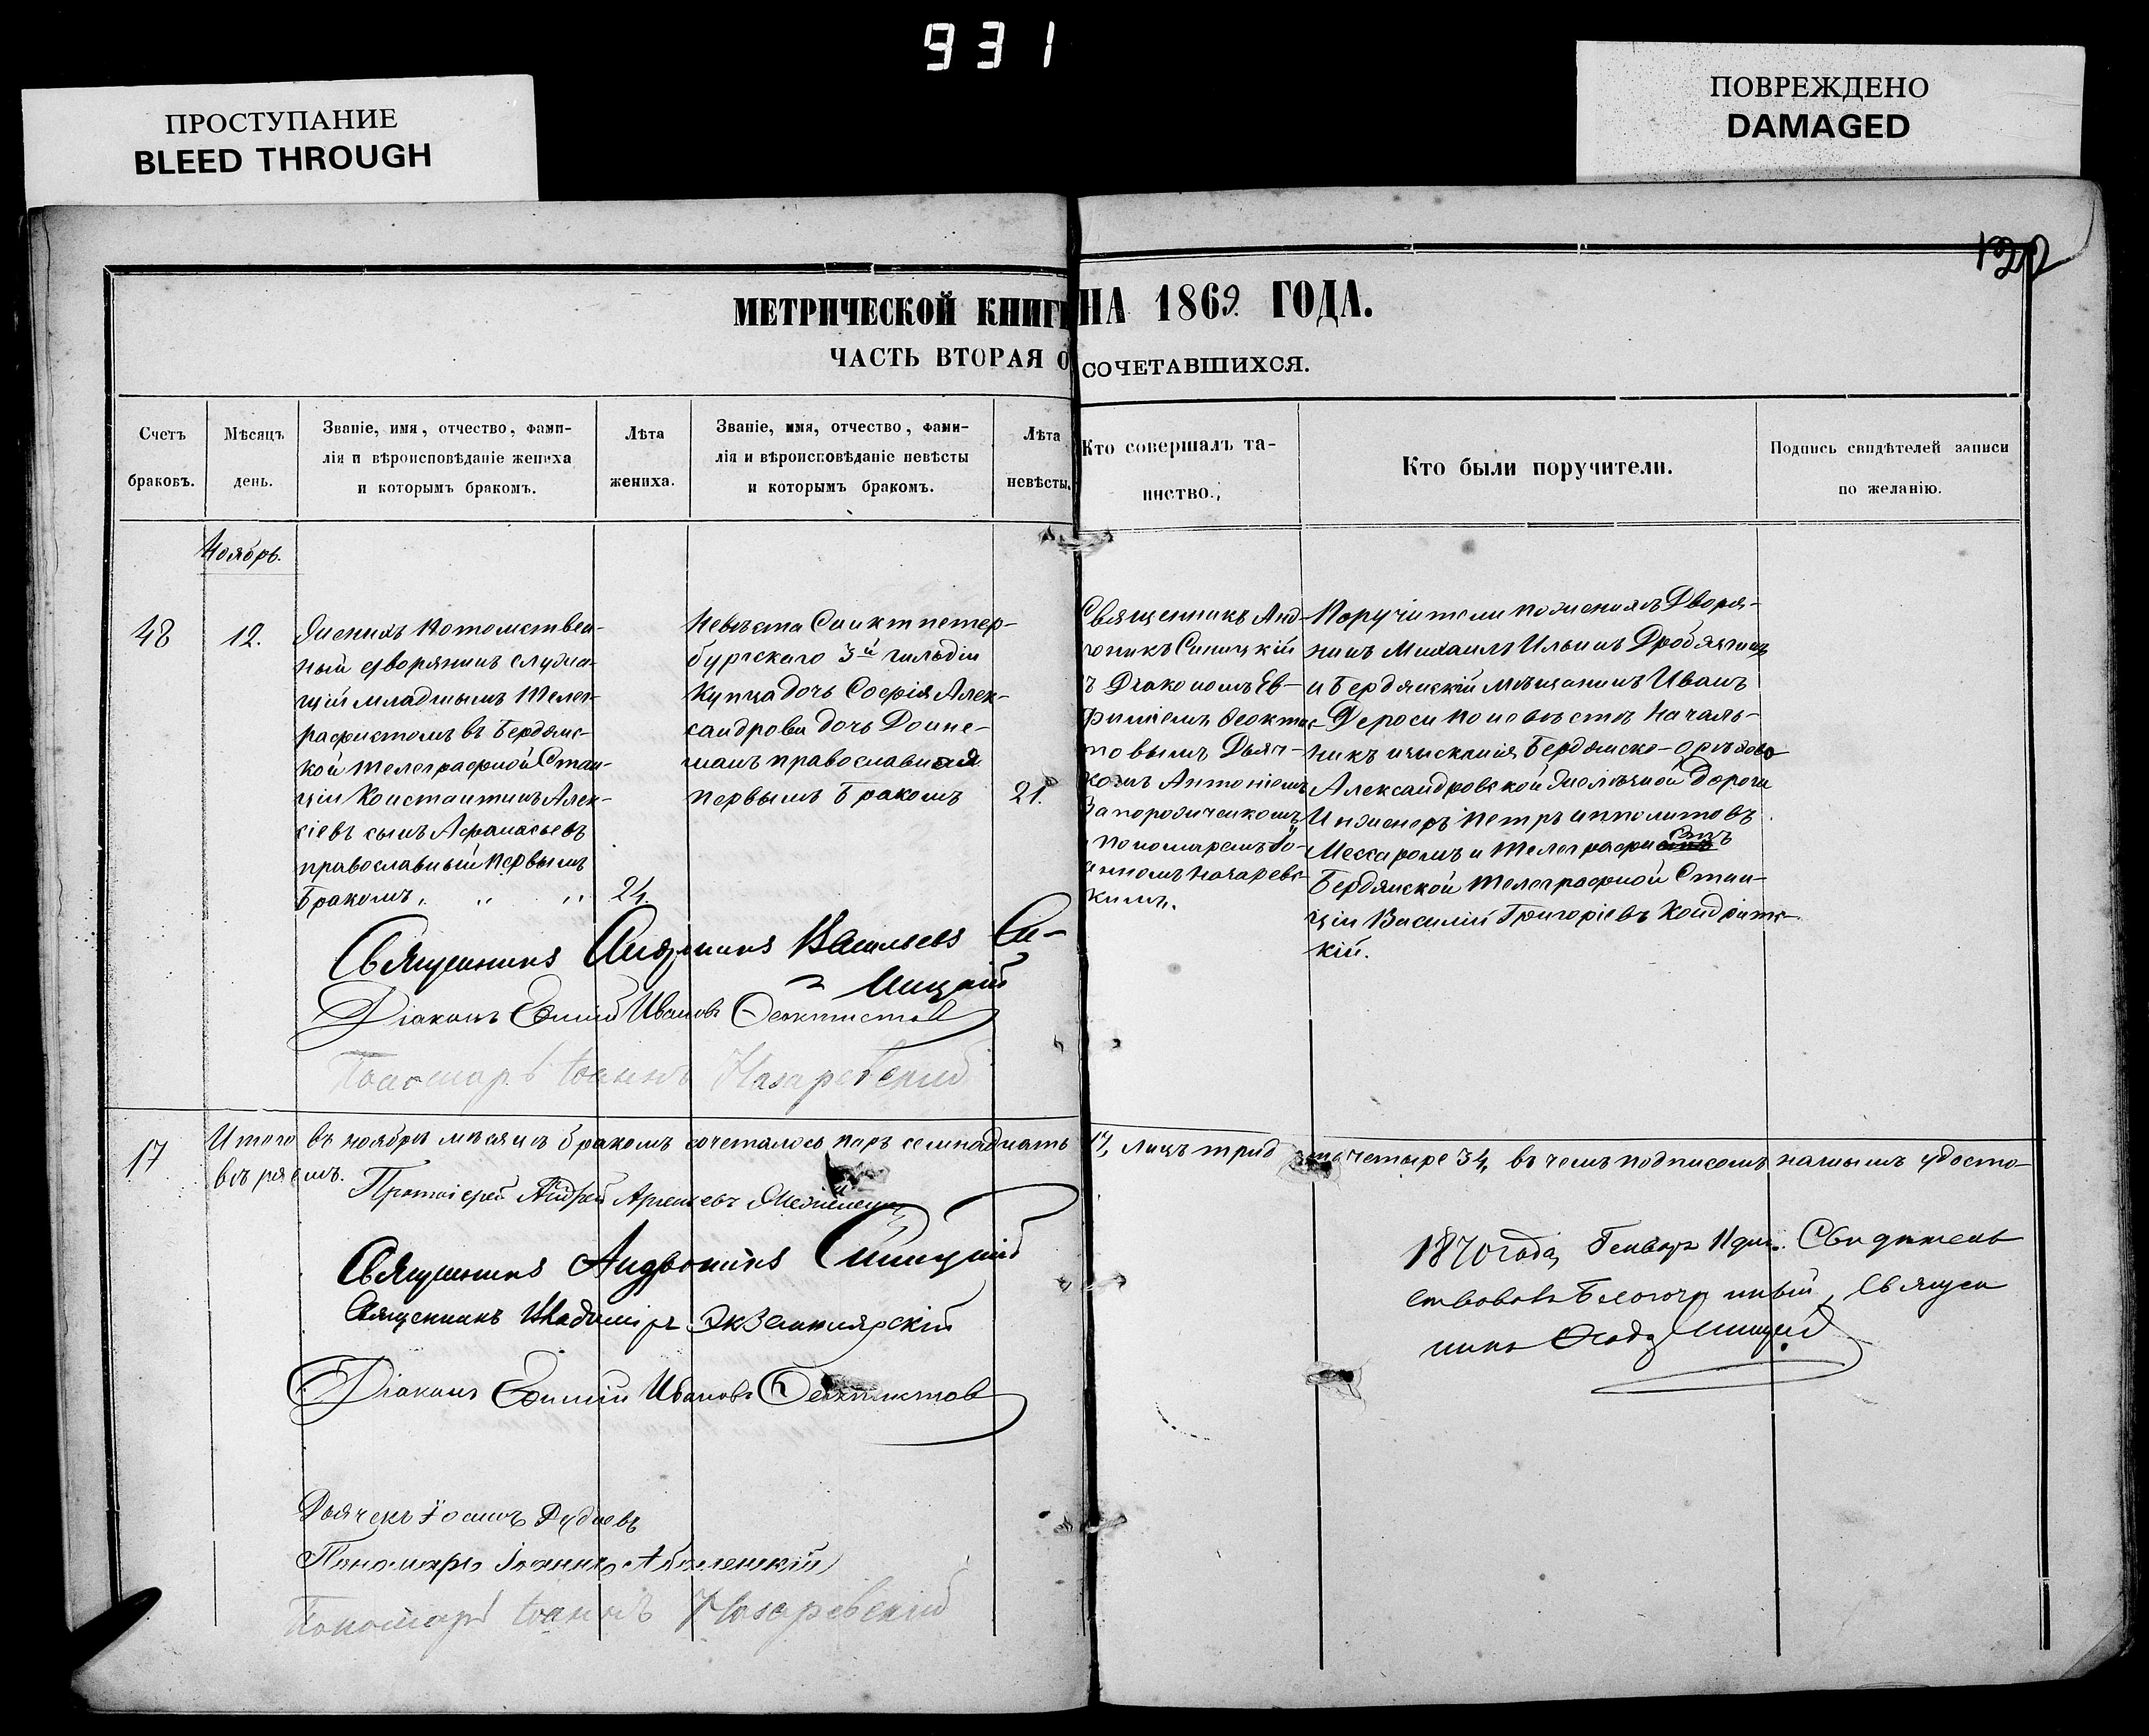 931
ПРОСТУПАНИЕ
BLEED THROUGH
ПОВРЕЖДЕНО
DAMAGED
МЕТРИЧЕСКОЙ КНИГИ НА 1869. ГОДА.
ЧАСТЬ ВТОРАЯ О СОЧЕТАВШИХСЯ.
Счетъ
браковъ.
Мѣсяцъ
день.
Званіе, имя, отчество, фами-
лія и вѣроисповѣданіе жениха
и которымъ бракомъ.
Лѣта
жениха.
Званіе, имя, отчество, фами-
лія и вѣроисповѣданіе невѣсты
и которымъ бракомъ.
Лѣта
невѣсты.
Кто совершалъ та-
инство.
Кто были поручители.
Подпись свидѣтелей записи
по желанію.
Ноябрь.
48
12.
Женихъ Потомствен-
ный дворянинъ служа-
щій младшимъ Телег-
рафистомъ въ Бердянс-
кой Телеграфной Стан-
ціи Константинъ Алек-
сіевъ сынъ Афанасьевъ
православный первымъ
Бракомъ
24.
Невѣста Санктпетер-
бургскаго 3й гильдіи
Купца дочь Софія Алек-
сандрова дочь
православная
первымъ Бракомъ
21.
Священникъ Анд-
роникъ Синицкій
съ Діакономъ Ев-
фиміемъ Феоктис-
товымъ Дьяч-
комъ Антоніемъ
Запорожченкомъ
Пономаремъ Іо-
анномъ Назаревс-
кимъ.
Поручители по женихѣ Дворя-
нинъ Михаилъ Ильинъ
и Бердянскій мѣщанинъ Иванъ
Дероси по невѣстѣ Началь-
никъ изысканія Бердянско-Орѣхово
Александровской желѣзной Дороги
Инженеръ Петръ Ипполитовъ
и Телеграфистъ
Бердянской Телеграфной Стан-
ціи Василій Григоріевъ Кондрітс-
кій.
Священникъ Андроникъ Васильевъ Си-
ницкій
Діаконъ Ефимій Ивановъ Феоктистовъ
Пономарь Іоаннъ Назаревскій
17
Итого въ ноябрѣ мѣсяцѣ бракомъ сочеталось паръ семнадцать 17, лицъ тридцать четыре 34, въ чемъ подписомъ нашимъ удосто-
вѣряемъ.
Протоіерей Андрей
Священникъ Андроникъ Синицкій
Священникъ Владиміръ Экземплярскій
Діаконъ Ефимій Ивановъ Феоктистовъ
Дьячекъ Іоаннъ Рудневъ
Пономарь Іоаннъ
Пономарь Іоаннъ Назаревскій
1870 года, Генваря 11 дня. Свидѣтель
ствовалъ Благочинный, Священ
никъ